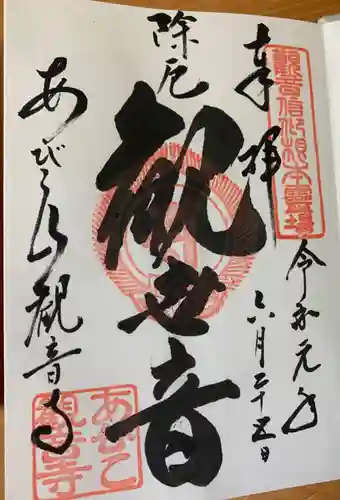 奉拝
観音信仰根本霊場
令和元年
六月二十五日
除厄
観世音
あびこ山観音寺
あびこ
観音寺